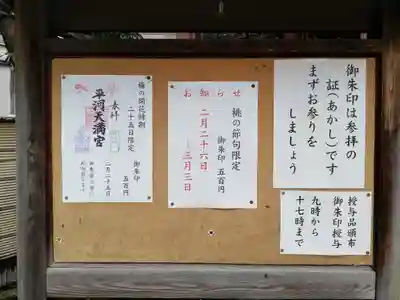 御朱印は参拝の
証(あかし)です
まずお参りを
しましょう
授与品頒布
御朱印授与
九時から
十七時まで
お知らせ
桃の節句限定
御朱印 五百円
二月二十六日
～三月三日
梅の開花時期
二十五日限定
御朱印
五百円
奉拝
平河天満宮
二月二十五日